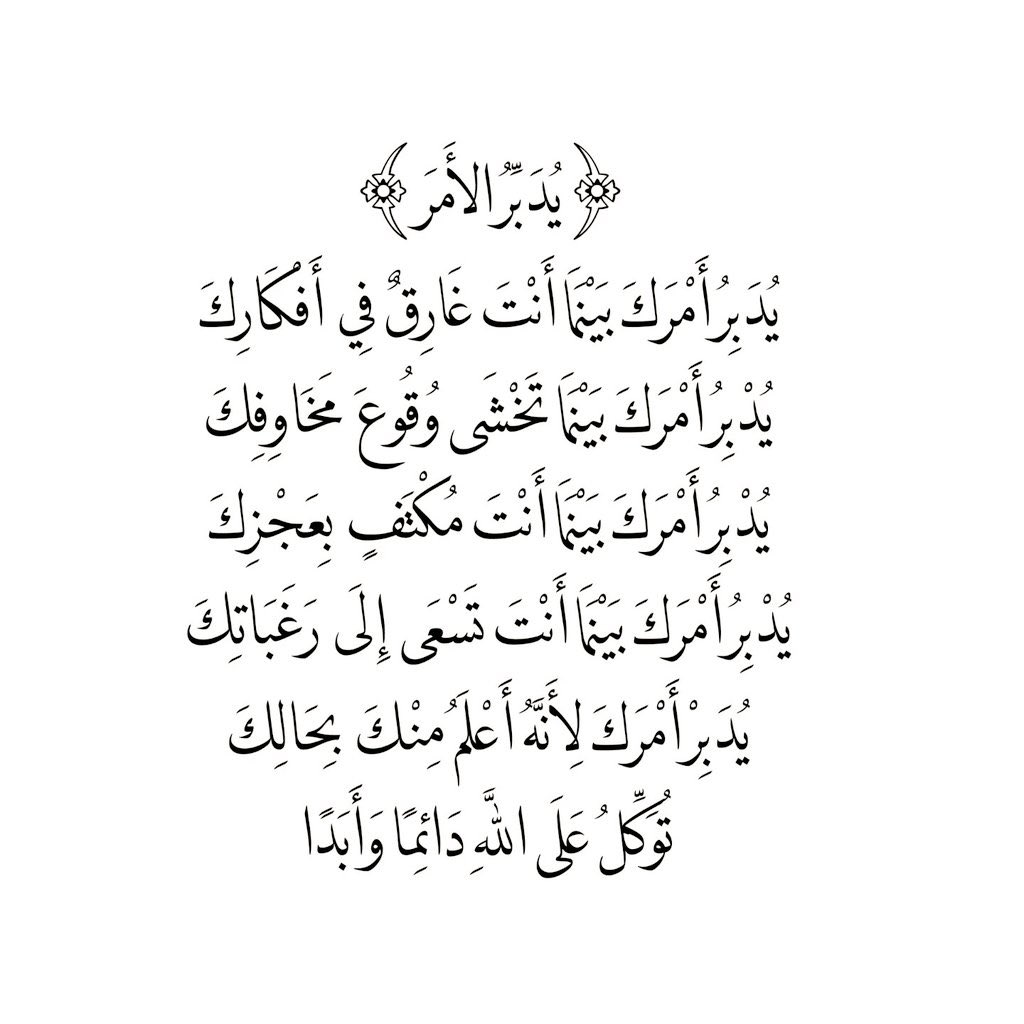 ﴿ يُدَبِّرُ الأَمَرَ ﴾
يُدَبِرُ أَمْرَكَ بَيْنَمَا أَنْتَ غَارِقٌ فِي أَفْكَارِكَ
يُدْبِرُ أَمْرَكَ بَيْنَمَا تَخْشَى وُقُوعَ مَخَاوِفِكَ
يُدْبِرُ أَمْرَكَ بَيْنَمَا أَنْتَ مُكْتَفٍ بِعَجْزِكَ
يُدْبِرُ أَمْرَكَ بَيْنَمَا أَنْتَ تَسْعَى إِلَى رَغَبَاتِكَ
يُدَبِرْ أَمْرَكَ لِأَنَّهُ أَعْلَمُ مِنْكَ بِحَالِكَ
تُوَكِّلُ عَلَى اللَّهِ دَائِمًا وَأَبَدًا